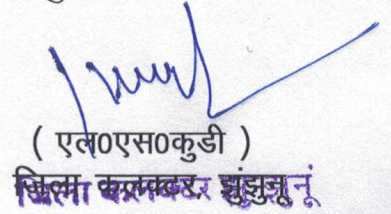 ( एल0एस0कुडी )
जिला कलक्टर, झुंझुनू